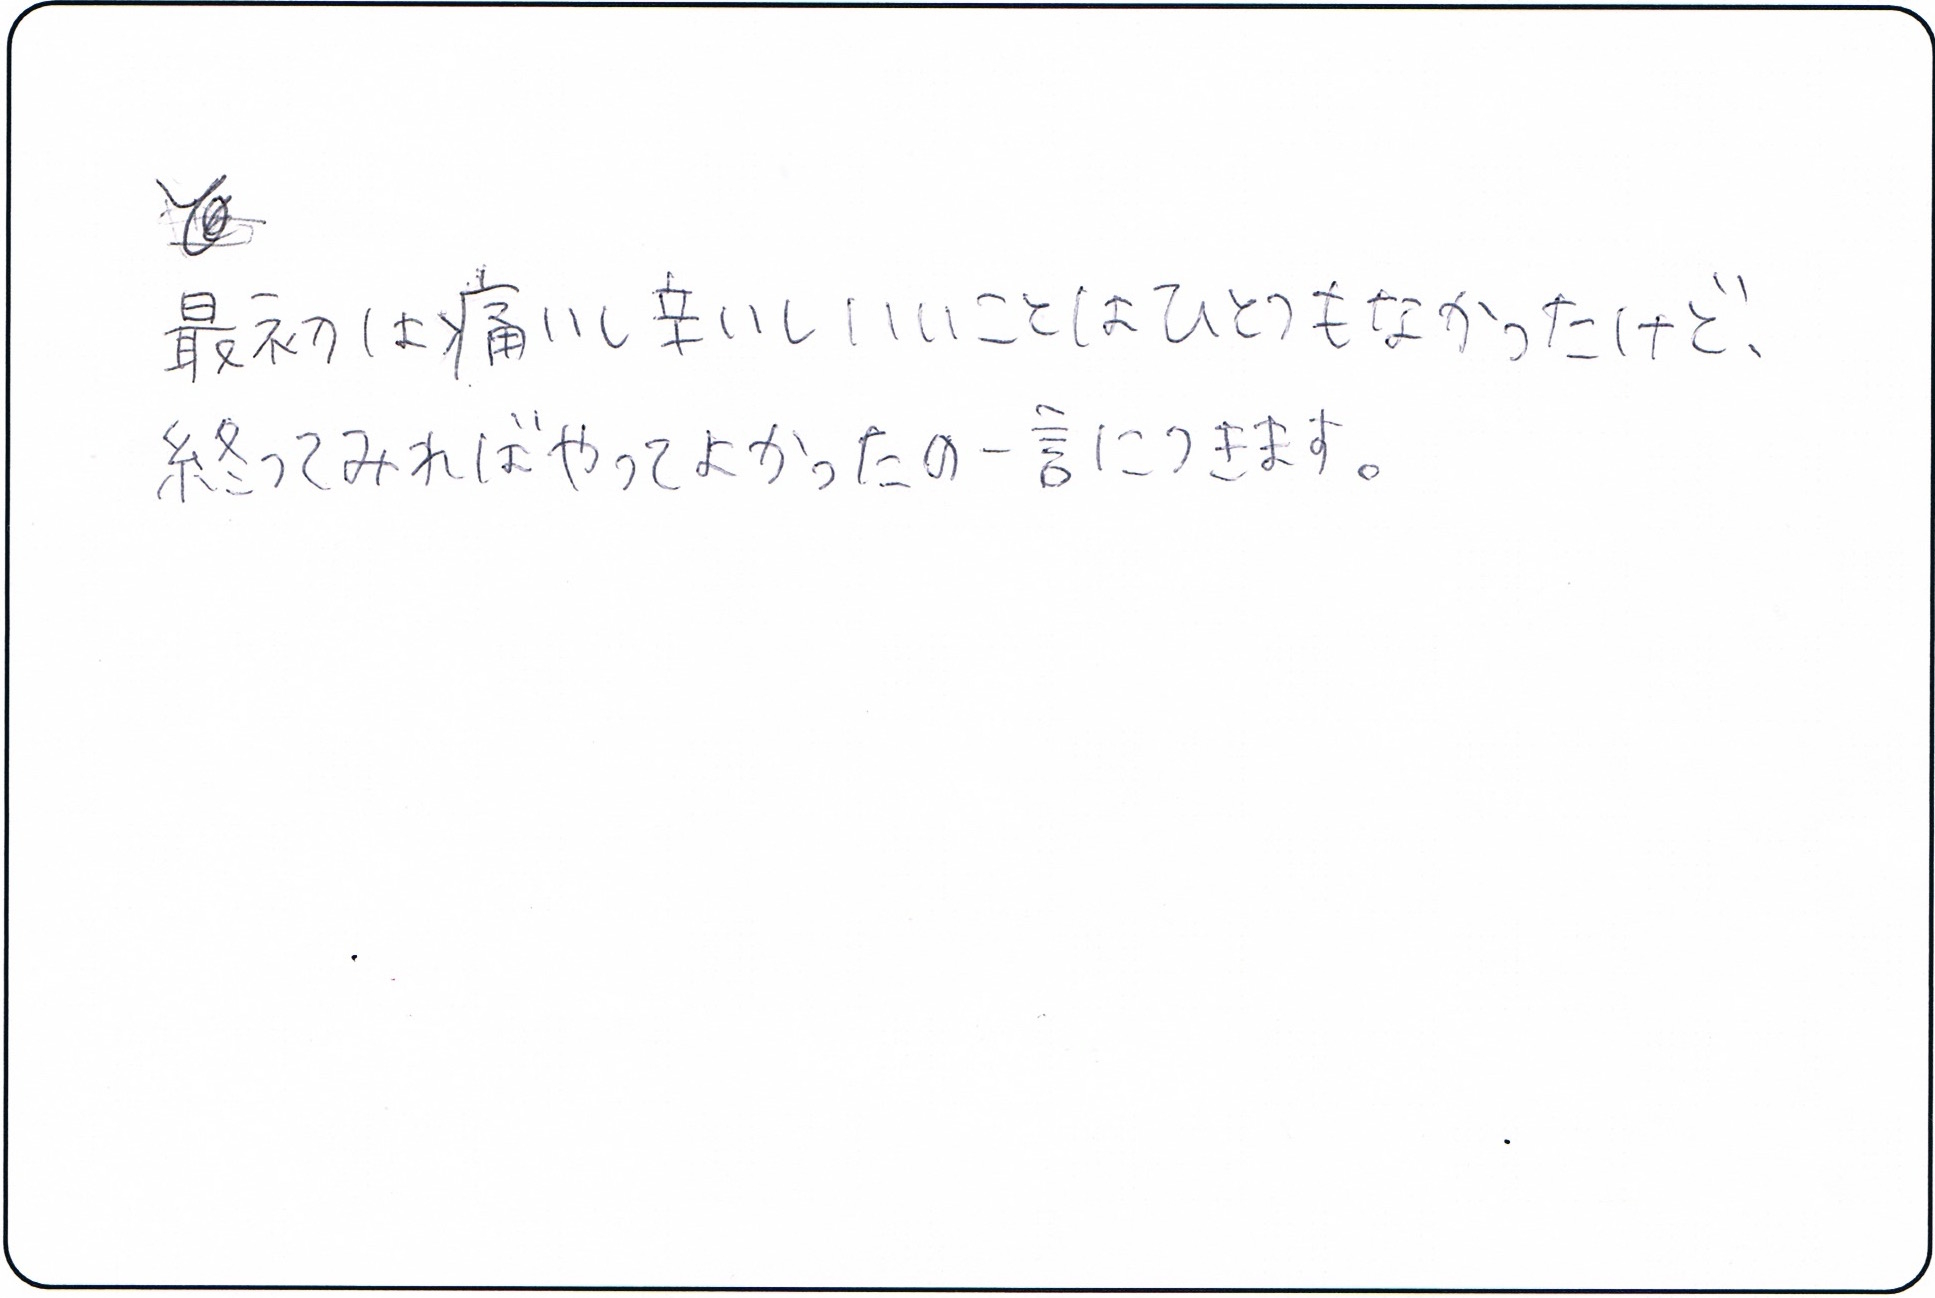 最初は痛いし辛いしいいことはひとつもなかったけど、
終ってみればやってよかったの一言につきます。